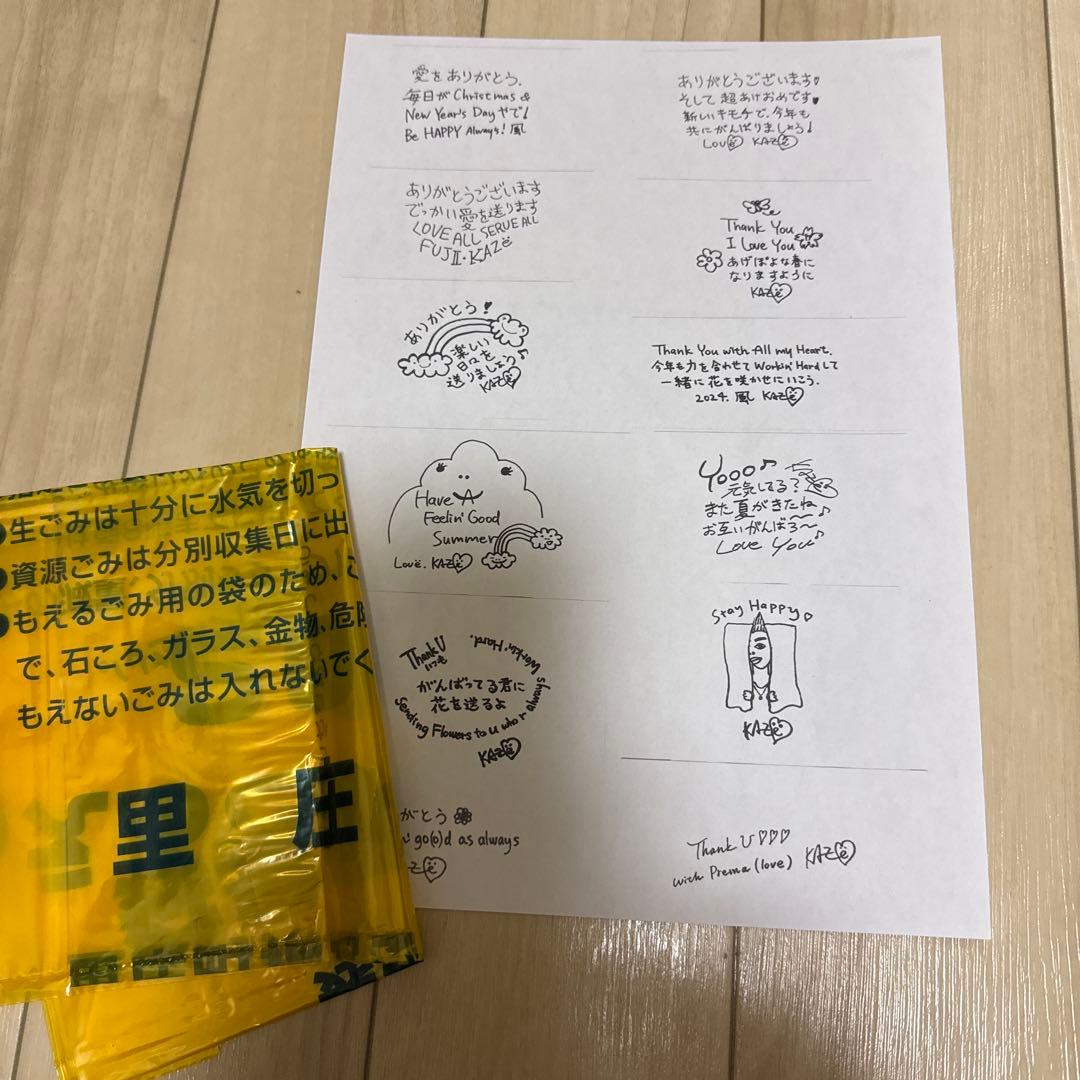 愛をありがとう.
毎日が Christmas &
New Year's Day やで!
Be HAPPY Always! 風
ありがとうございます♥
そして 超あけおめです♥
新しいキモチで、今年も
共にがんばりましょう!
Love KAZe
ありがとうございます
でっかい愛を送ります
LOVE ALL SERVE ALL
FUJII・KAZe
Thank You
I Love You
あげぽよな春に
なりますように
KAZe
ありがとう!
楽しい
日々を
送りましょう♪
KAZe
Thank You with All my Heart.
今年も力を合わせて Workin' Hard して
一緒に花を咲かせにいこう.
2024. 風 KAZe
Have A
Feelin' Good
Summer
Love. KAZe
Yooo♪
元気してる?
また夏がきたね
お互いがんばろ〜
Love You♪
Thank U
いつも
Workin' Hard.
がんばってる君に
花を送るよ
Sending Flowers to U who r always
KAZe
Stay Happy♡
KAZe
がとう
go(o)d as always
Ze
Thank U♡♡♡
with Prema (love) KAZe
●生ごみは十分に水気を切っ
●資源ごみは分別収集日に出
●もえるごみ用の袋のため、
で、石ころ、ガラス、金物、危険
もえないごみは入れないでく
里 庄